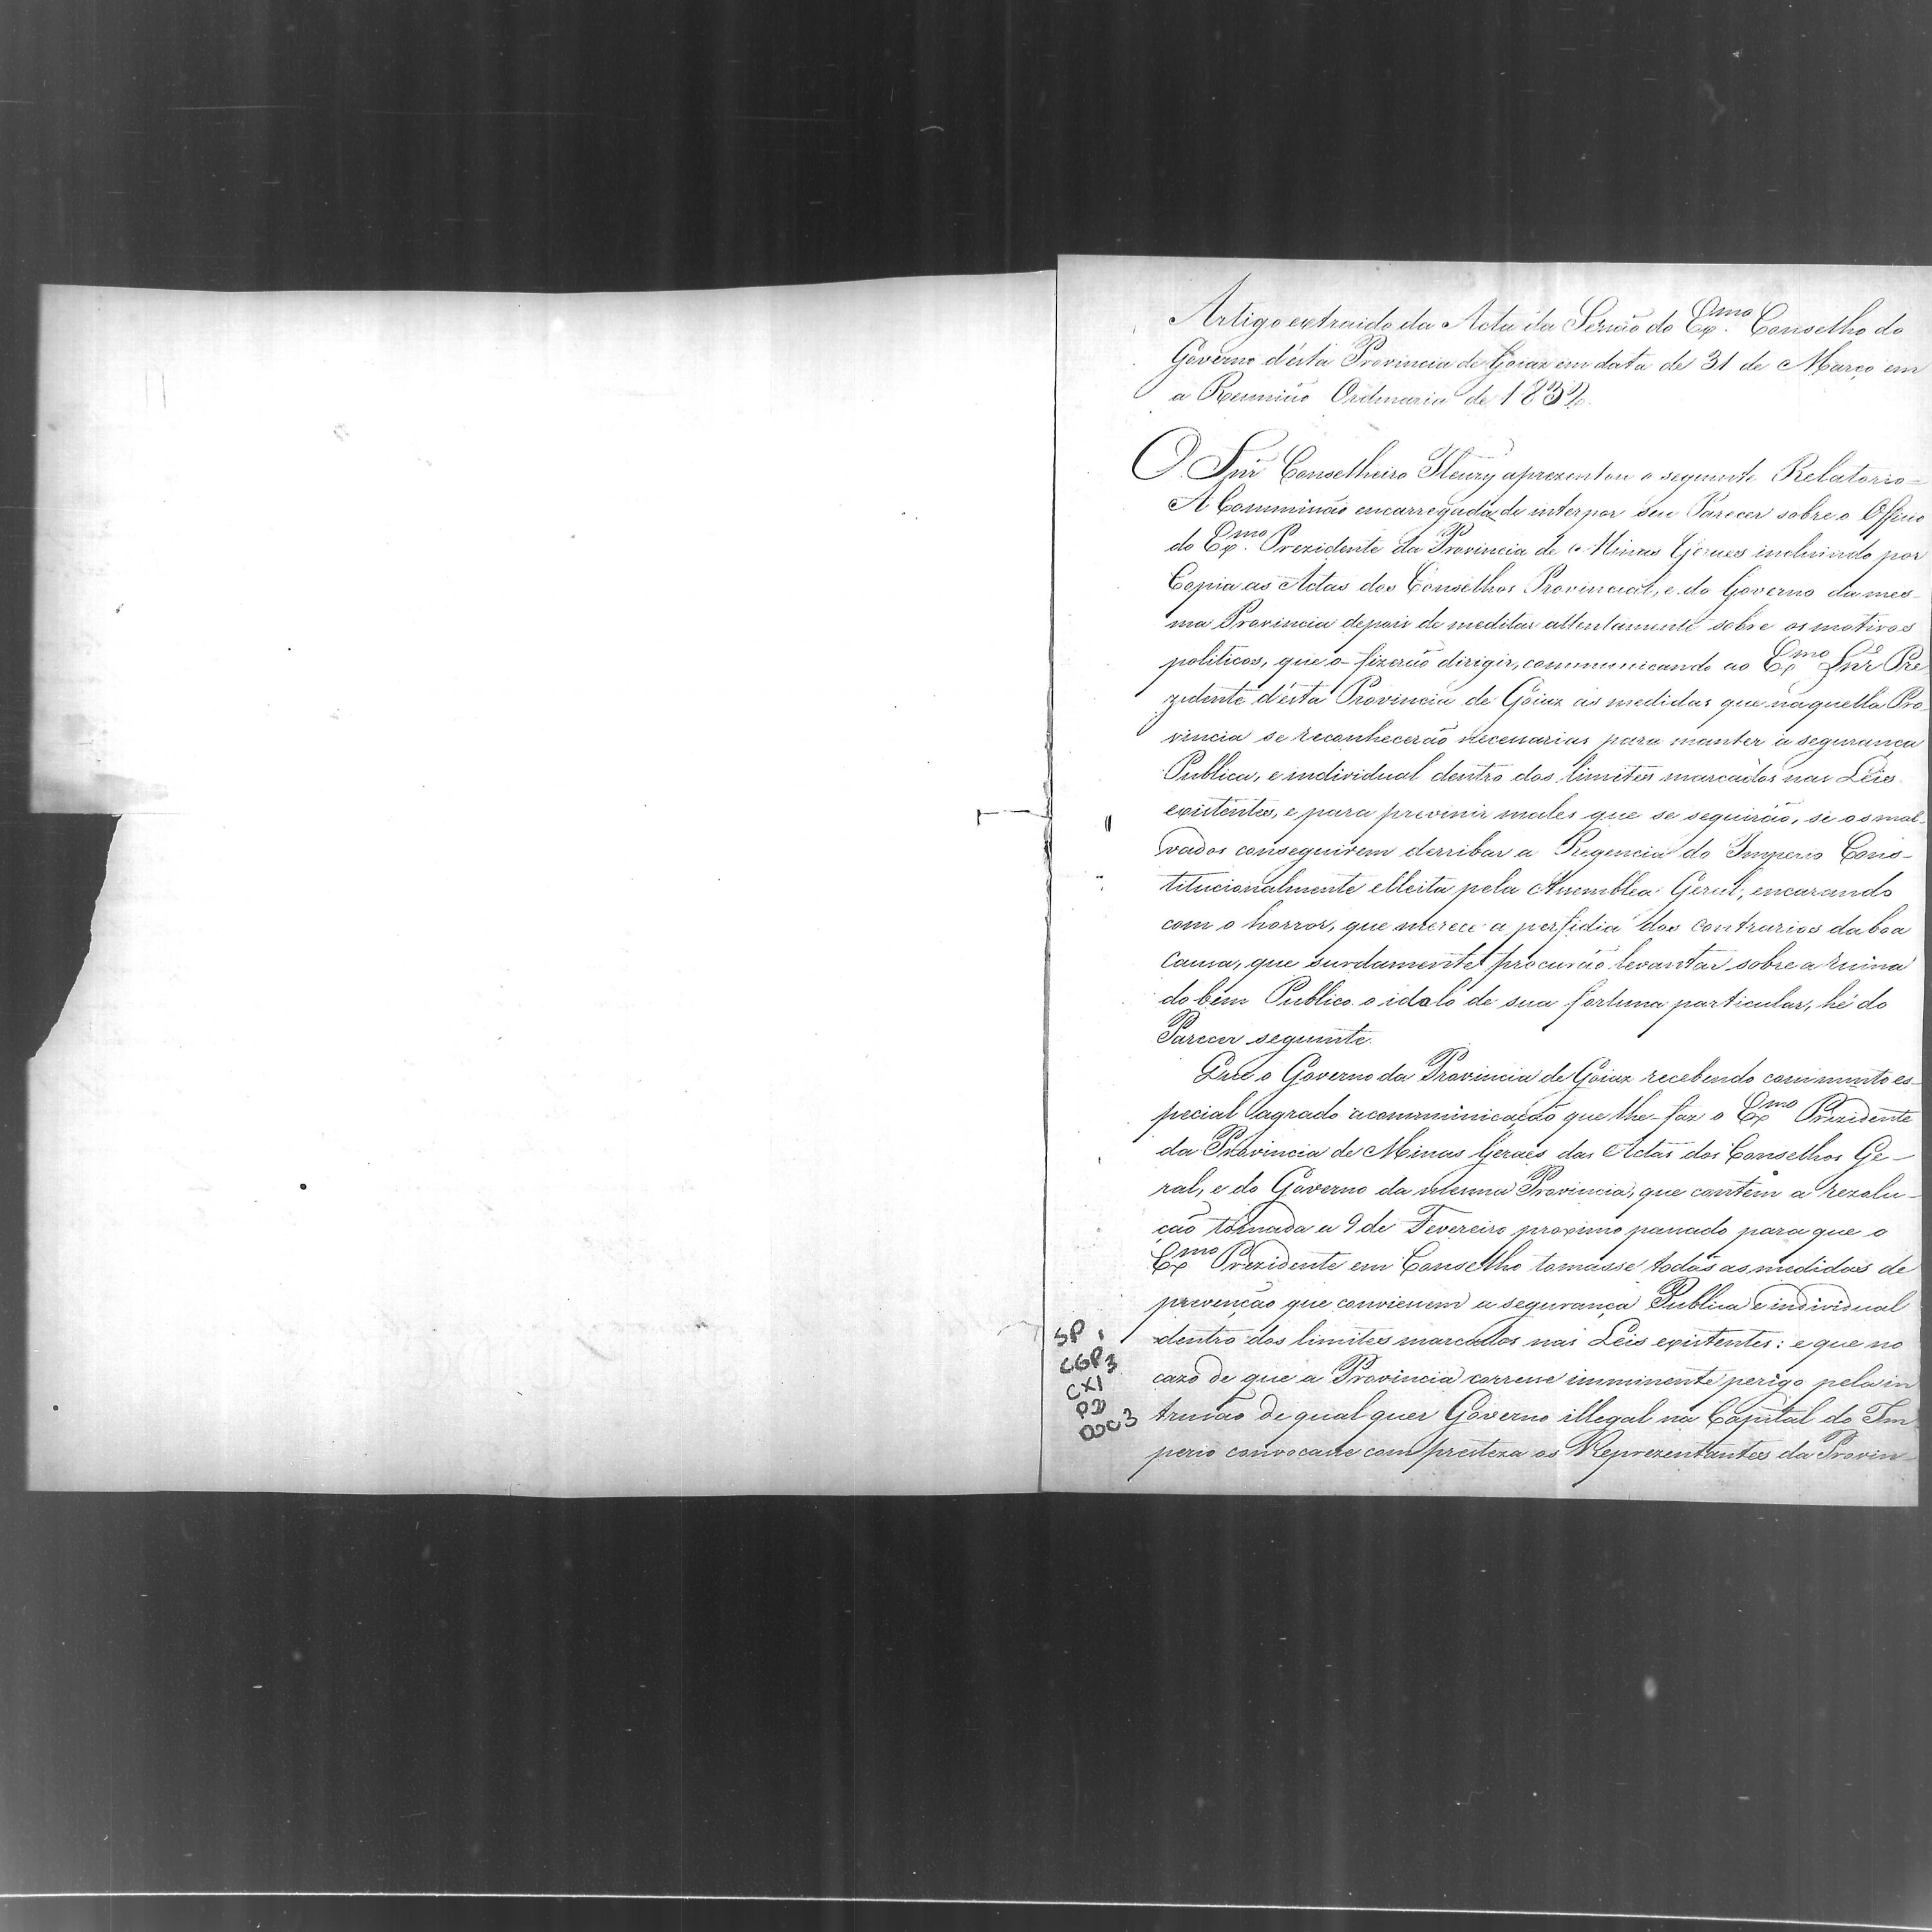 Artigo extraido da Acta da Sessão do Ex.mo Conselho do
Governo d'esta Provincia de Goiaz em data de 31 de Março em
a Reunião Ordinaria de 1832.
O Snr Conselheiro Fleury aprezentou o seguinte Relatorio=
A Commissão encarregada de interpor seu Parecer sobre o Officio
do Ex.mo Prezidente da Provincia de Minas Geraes incluindo por
Copia as Actas dos Conselhos Provincial, e do Governo da mes-
ma Provincia depois de meditar attentamente sobre os motivos
politicos, que o fizerão dirigir, communicando ao Exmo Snr Pre
zidente d'esta Provincia de Goiaz as medidas que naquella Pro-
vincia se reconhecerão necessarias para manter a segurança
Publica, e individual dentro dos limites marcados nas Leis
existentes, e para previnir males que se seguirão, se os mal-
vados conseguirem derribar a Regencia do Imperio Cons-
titucionalmente elleita pela Assemblea Geral; encarando
com o horror, que merece a perfidia dos contrarios da boa
Causa, que surdamente procurão levantar sobre a ruina
do bem Publico o idolo de sua fortuna particular, hé do
Parecer seguinte.
Que o Governo da Provincia de Goiaz recebendo com muito es-
pecial agrado a communicação que lhe-faz o Exmo Prezidente
da Provincia de Minas Geraes das Actas dos Conselhos Ge-
ral, e do Governo da mesma Provincia, que contém a rezolu-
ção tomada a 9 de Fevereiro proximo passado para que o
Exmo Prezidente em Conselho tomasse todas as medidas de
prevenção que conviessem a segurança Publica e individual
dentro dos limites marcados nas Leis existentes: e que no
cazo de que a Provincia corresse imminente perigo pela in
trusão de qualquer Governo illegal na Capital do Im
perio convocasse com presteza os Reprezentantes da Provin-
SP 1
CGP3
CX1
PD
DOC3